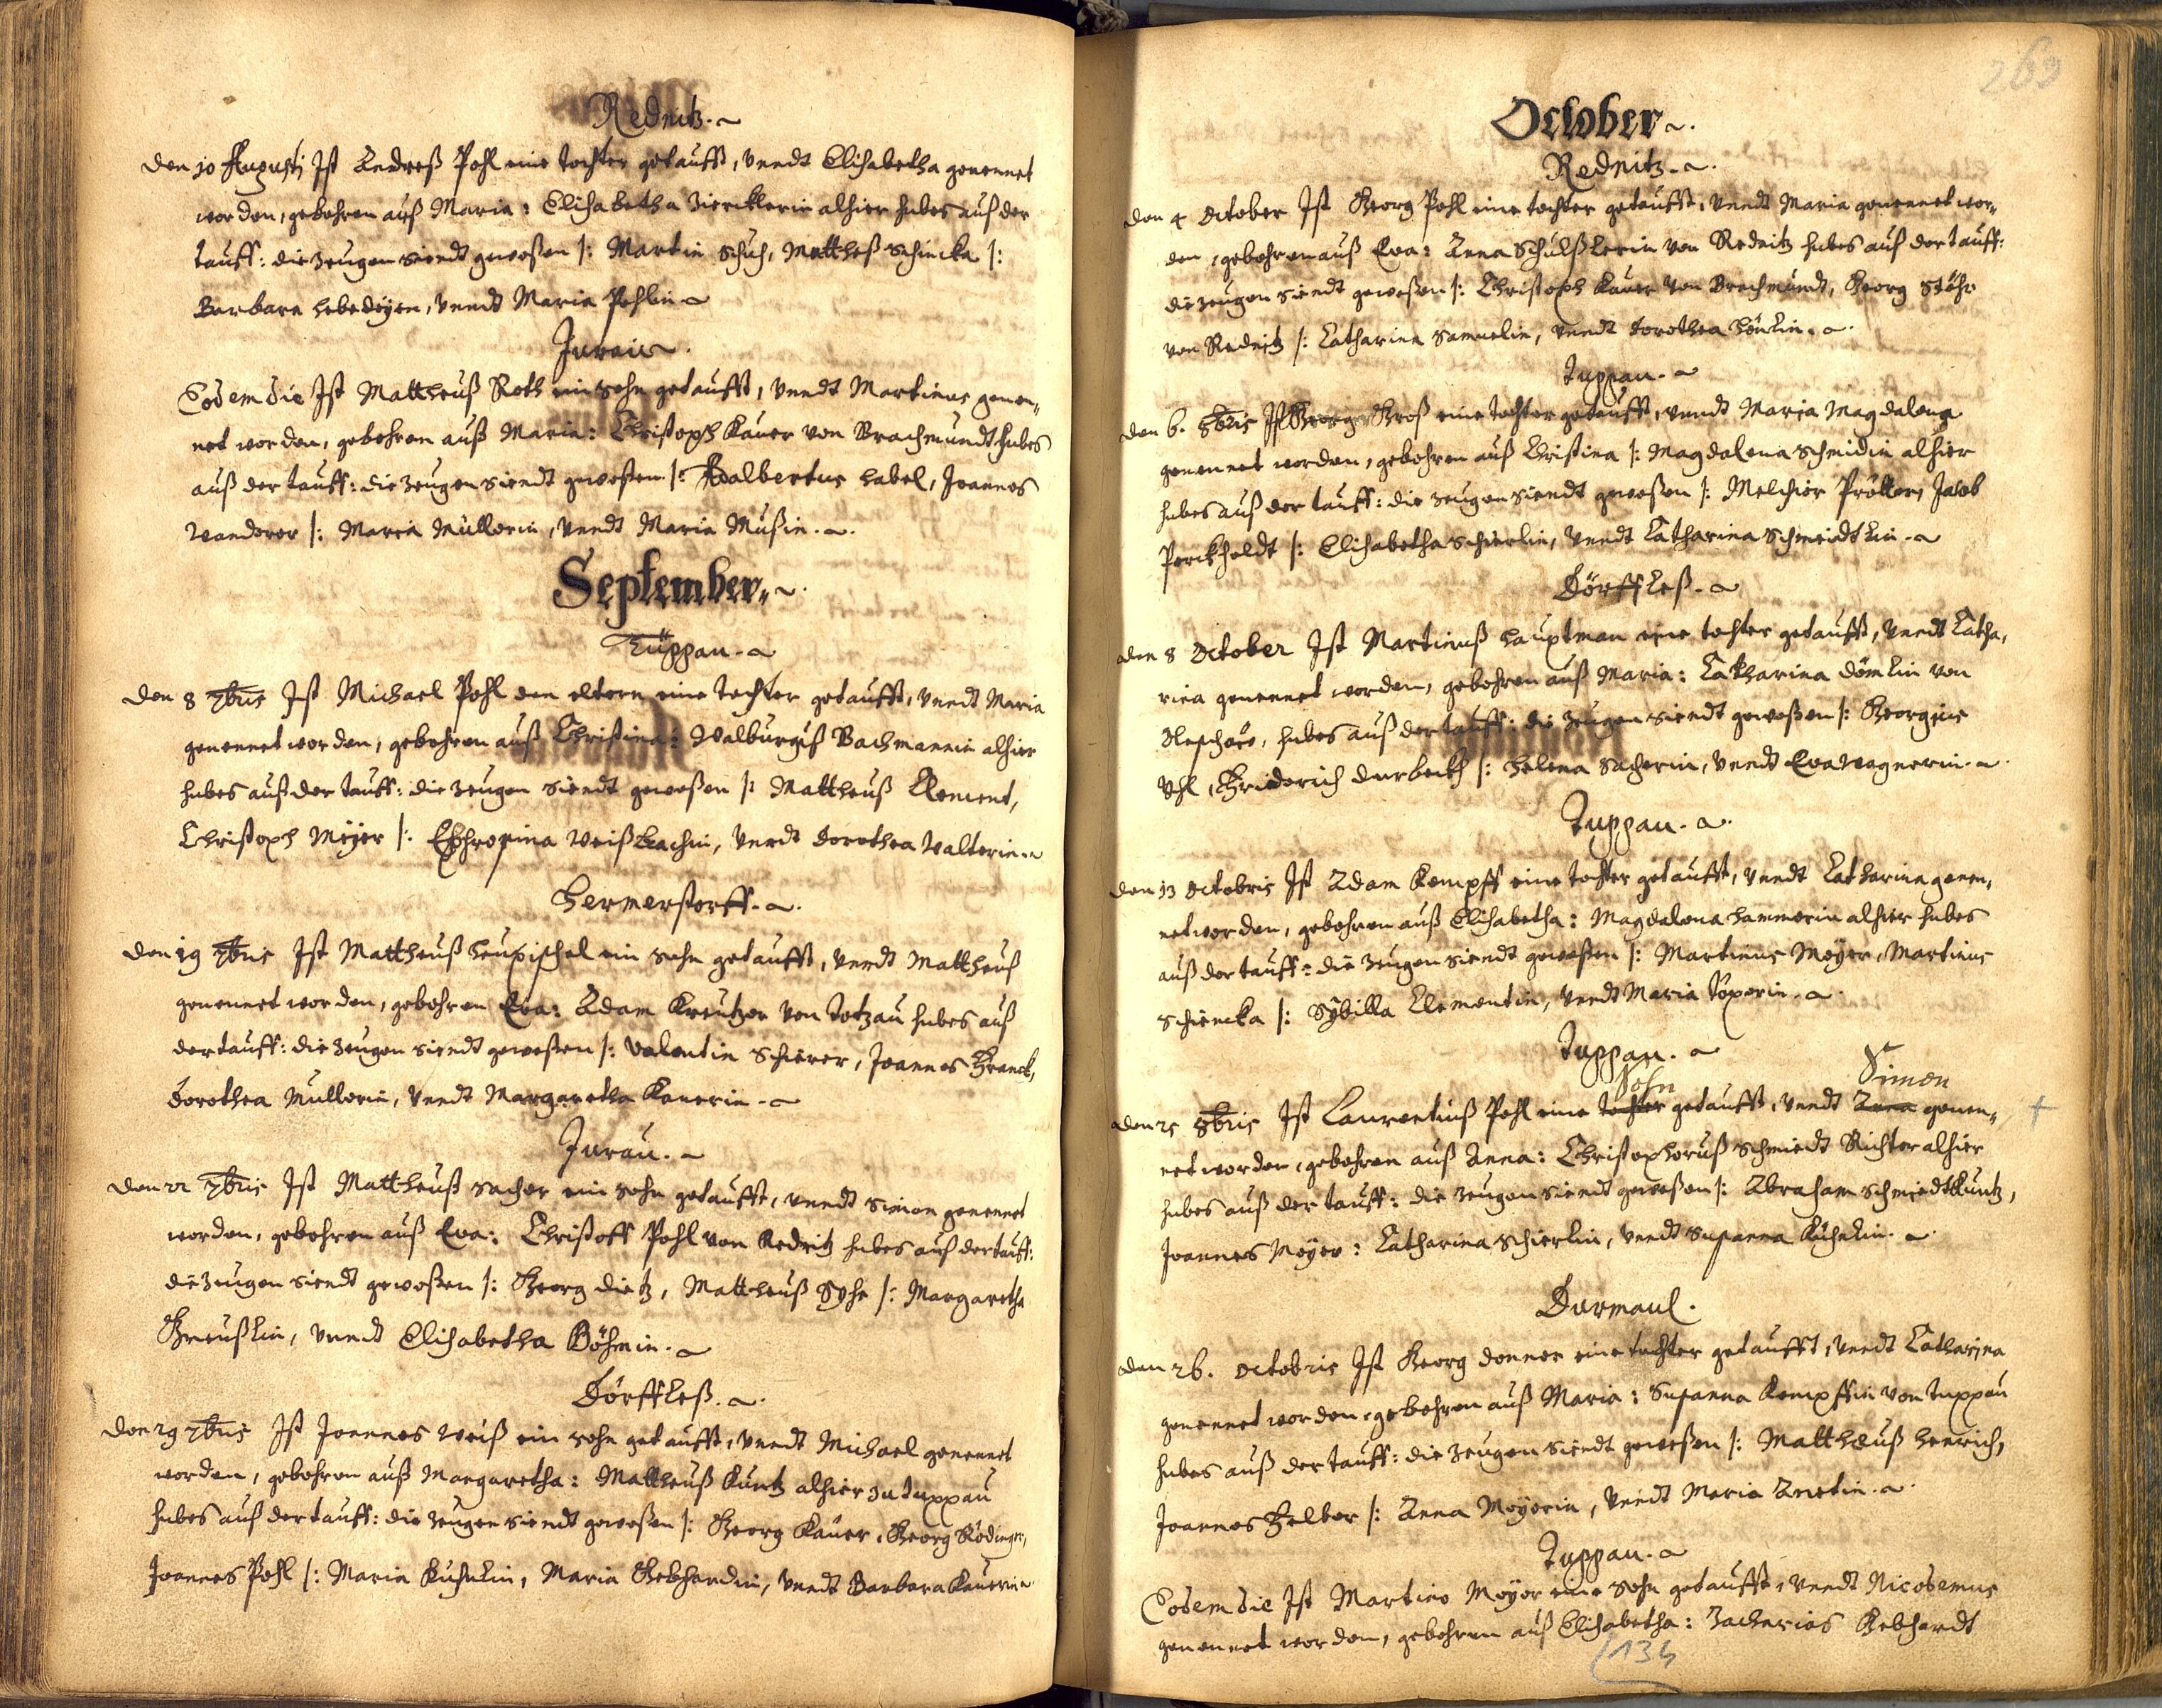 Rednitz.
den 10 Augusti Ist Andreß Pohl eine tochter getaufft, vnndt Elisabetha genennet
worden, gebohren auß Maria: Elisabetha Zierklerin alhier hubes auß der
tauff: die zeugen siendt geweßen /: Martin Schuch, Mattheß Schincka /:
Barbara hebedeyen, vnndt Maria Pohlin
Juraiv.
Eodem die Ist Mattheuß Roth ein sohn getaufft, vnndt Martinus genen-
net worden, gebohren auß Maria: Christoph Kauer von Brachmundt hubes
auß der tauff: die zeugen siendt geweßen /: Adalbertus habel, Joannes
Wanderer /: Maria Müllerin, vnndt Maria Mußin.
September
Tüppau.
den 8 7bris Ist Michael Pohl den eltern eine tochter getaufft, vnndt Maria
genennet worden, gebohren auß Christina: Walburgiß Bachmannin alhier
hubes auß der tauff: die zeugen siendt geweßen /: Mattheuß Clement,
Christoph Meÿer /: Ephrosina Weißbachin, vnndt Dorothea Walterin
Hermerstorff.
den 19 7bris Ist Mattheuß heupischel ein sohn getaufft, vnndt Mattheuß
genennet worden, gebohren Eva: Adam Kreutzer von Totzau hubes auß
der tauff: die zeugen siendt geweßen /: Valentin Schierer, Joannes Franck,
Dorothea Müllerin, vnndt Margaretha Kauerin.
Jurau.
den 22 7bris Ist Mattheuß Sacher ein sohn getaufft, vnndt Simon genennet
worden, gebohren auß Eva: Christoff Pohl von Rednitz hubes auß der tauff:
die zeugen siendt geweßen /: Georg Dietz, Mattheuß Syhr /: Margaretha
Greußlin, vnndt Elisabetha Böhmin.
Dörffleß.
den 29 7bris Ist Joannes Weiß ein sohn getaufft, vnndt Michael genennet
worden, gebohren auß Margaretha: Mattheuß Kuntz alhier zu Tuppau
hubes auß der tauff: die zeugen siendt geweßen /: Georg Kauer, Georg Rödinger,
Joannes Pohl /: Maria Kuhnlin, Maria Gebhardin, vnndt Barbara Kauerin
269
October
Rednitz.
den 4 October Ist Georg Pohl eine tochter getaufft, vnndt Maria genennet wor-
den, gebohren auß Eva: Anna Schulßlerin von Rednitz hubes auß der tauff:
die zeugen siendt geweßen /: Christoph Kauer von Brachmundt, Georg Stöhr
von Rednitz /: Catharina Samuelin, vnndt Dorothea hönlin.
Tuppau.
den 6. 8bris Ist Georg Groß eine tochter getaufft, vnndt Maria Magdalena
genennet worden, gebohren auß Christina /: Magdalena Schmidin alhier
hubes auß der tauff: die zeugen siendt geweßen /: Melchior Pröller, Jacob
Perckholdt /: Elisabetha Schierlin, vnndt Catharina Schmeidtlin.
Dörffleß.
den 8 October Ist Martinuß hauptman eine tochter getaufft, vnndt Catha-
rina genennet worden, gebohren auß Maria: Catharina dömlin von
hubes auß der tauff: die zeugen siendt geweßen /: Georgius
Vhl, Friderich durbeckh /: Helena Sacherin, vnndt Eva Wagnerin.
Tuppau.
den 13 Octobris Ist Adam Kempff eine tochter getaufft, vnndt Catharina genen-
net worden, gebohren auß Elisabetha: Magdalena hammerin alhier hubes
auß der tauff: die zeugen siendt geweßen /: Martinus Meyer, Martinus
Schiencka /: Sÿbilla Clementin, vnndt Maria Töperin.
Tuppau.
Sohn Simon
den 25 8bris Ist Laurentiuß Pohl eine tochter getaufft, vnndt Anna genen-
net worden, gebohren auß Anna: Christophoruß Schmiedt Richter alhier
hubes auß der tauff: die zeugen siendt geweßen /: Abraham Schmiedtkuntz,
Joannes Meyer: Catharina Schierlin, vnndt Susanna Kuhnlin.
Durmaul.
den 26. Octobris Ist Georg donner eine tochter getaufft, vnndt Catharina
genennet worden, gebohren auß Maria: Susanna Kempffin von Tuppau
hubes auß der tauff: die zeugen siendt geweßen /: Mattheuß Henrich,
Joannes Felber /: Anna Meyerin, vnndt Maria Antin.
Tuppau.
Eodem die Ist Martino Meyer eine sohn getaufft, vnndt Nicodemus
genennet worden, gebohren auß Elisabetha: Zacharias Gebhardt
134